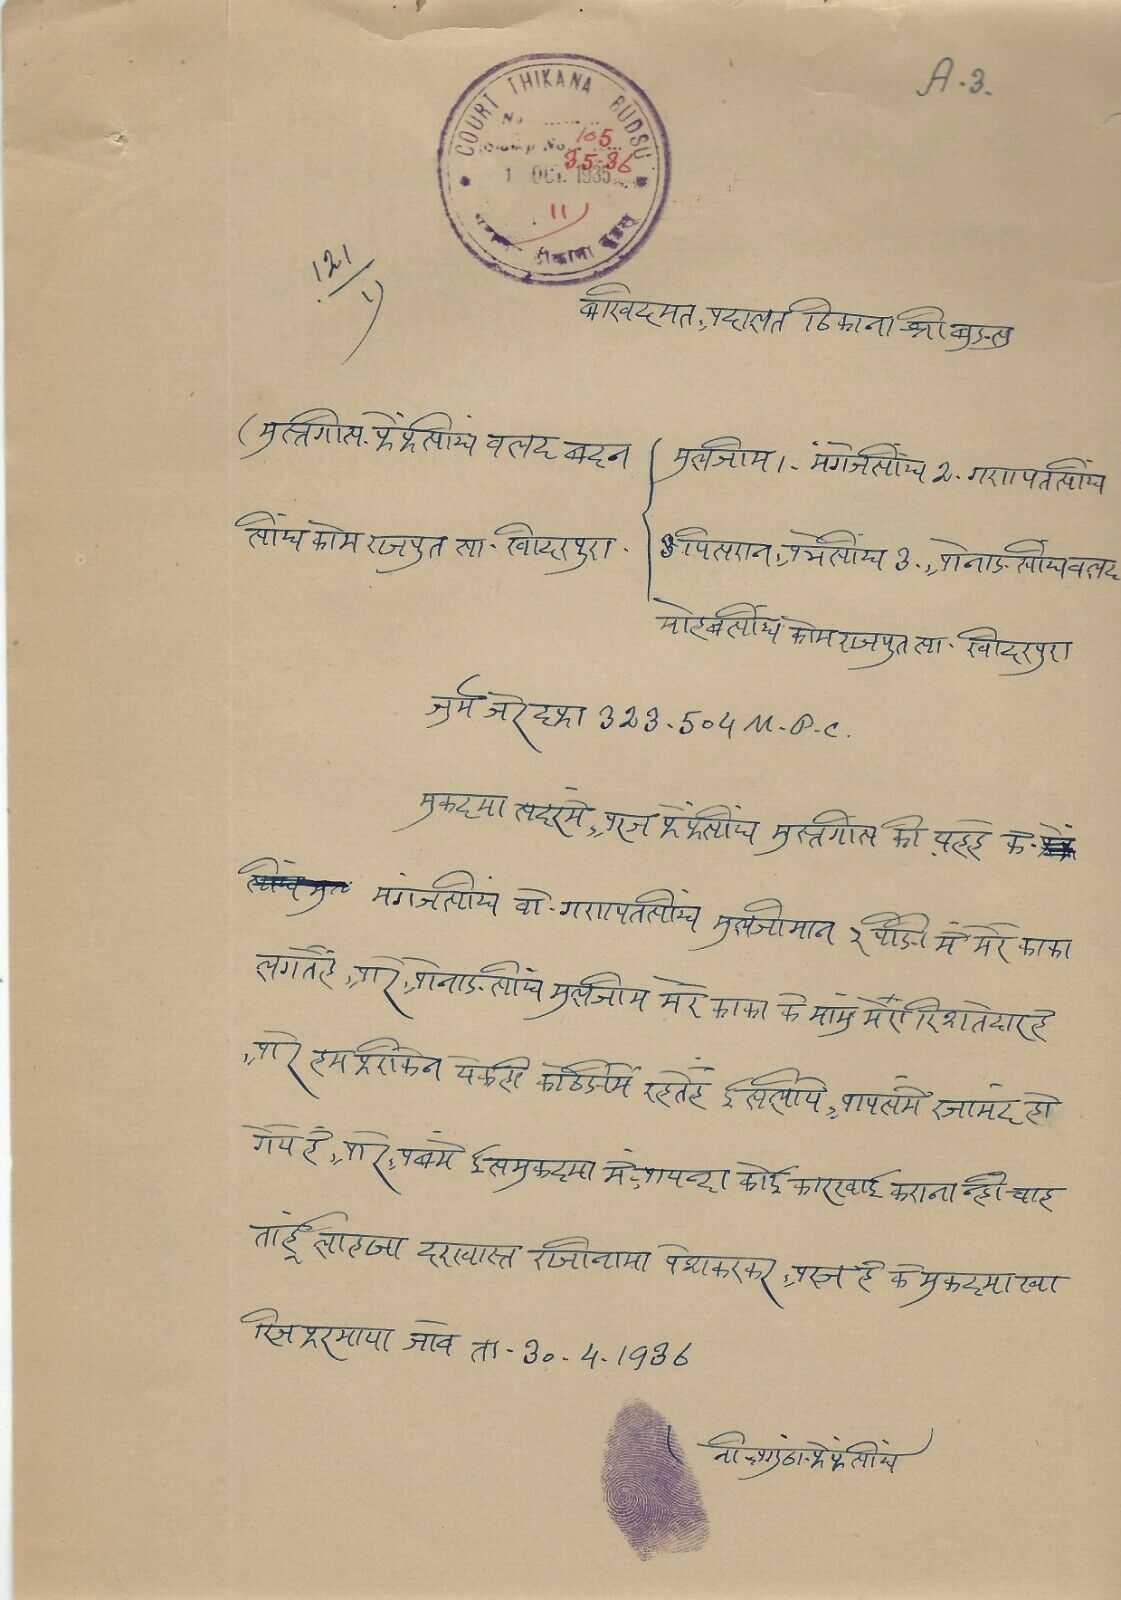 A-3.
COURT THIKANA BUDSU
No.
Stamp No. 105
35-36
1 OCT. 1935
11)
ठीकाना बुड़सू
121/1)
बखिदमत अदालत ठिकाना श्री बुड़सु
(मुस्तगीस फेंफसींघ वलद बदन
सींघ कोम राजपुत सा. खीदरपुरा.
मुलजीम 1. मंगेजसींघ 2. गणपतसींघ
पिसरान अभेसींघ 3. ओनाड़सींघ वलद
मोहबसींघ कोम राजपुत सा. खीदरपुरा
जुर्म जेरे दफा 323-504 M.P.C.
मुकदमा सदरमे अरज फेंफसींघ मुस्तगीस की यहहे के
मंगेजसींघ वो गणपतसींघ मुलजीमान में मेरे काका
लगतेहें ओर ओनाड़सींघ मुलजीम मेरे काका के मांमु मेंरा रिशतेदारहे
ओर हम फरीकेन येकही कोटड़ीमें रहतेहें ईसलीये आपसमे रजामंद हो
गेये हें ओर अबमे ईसमुकदमा में आयन्दा कोई काररवाई कराना न्ही चाह
ताहूं लीहाजा दरखास्त राजीनामा पेशकरकर अरज हे के मुकदमा खा
रिज फरमाया जावे ता. 30.4.1936
नी. अगुंठा फेंफसींघ